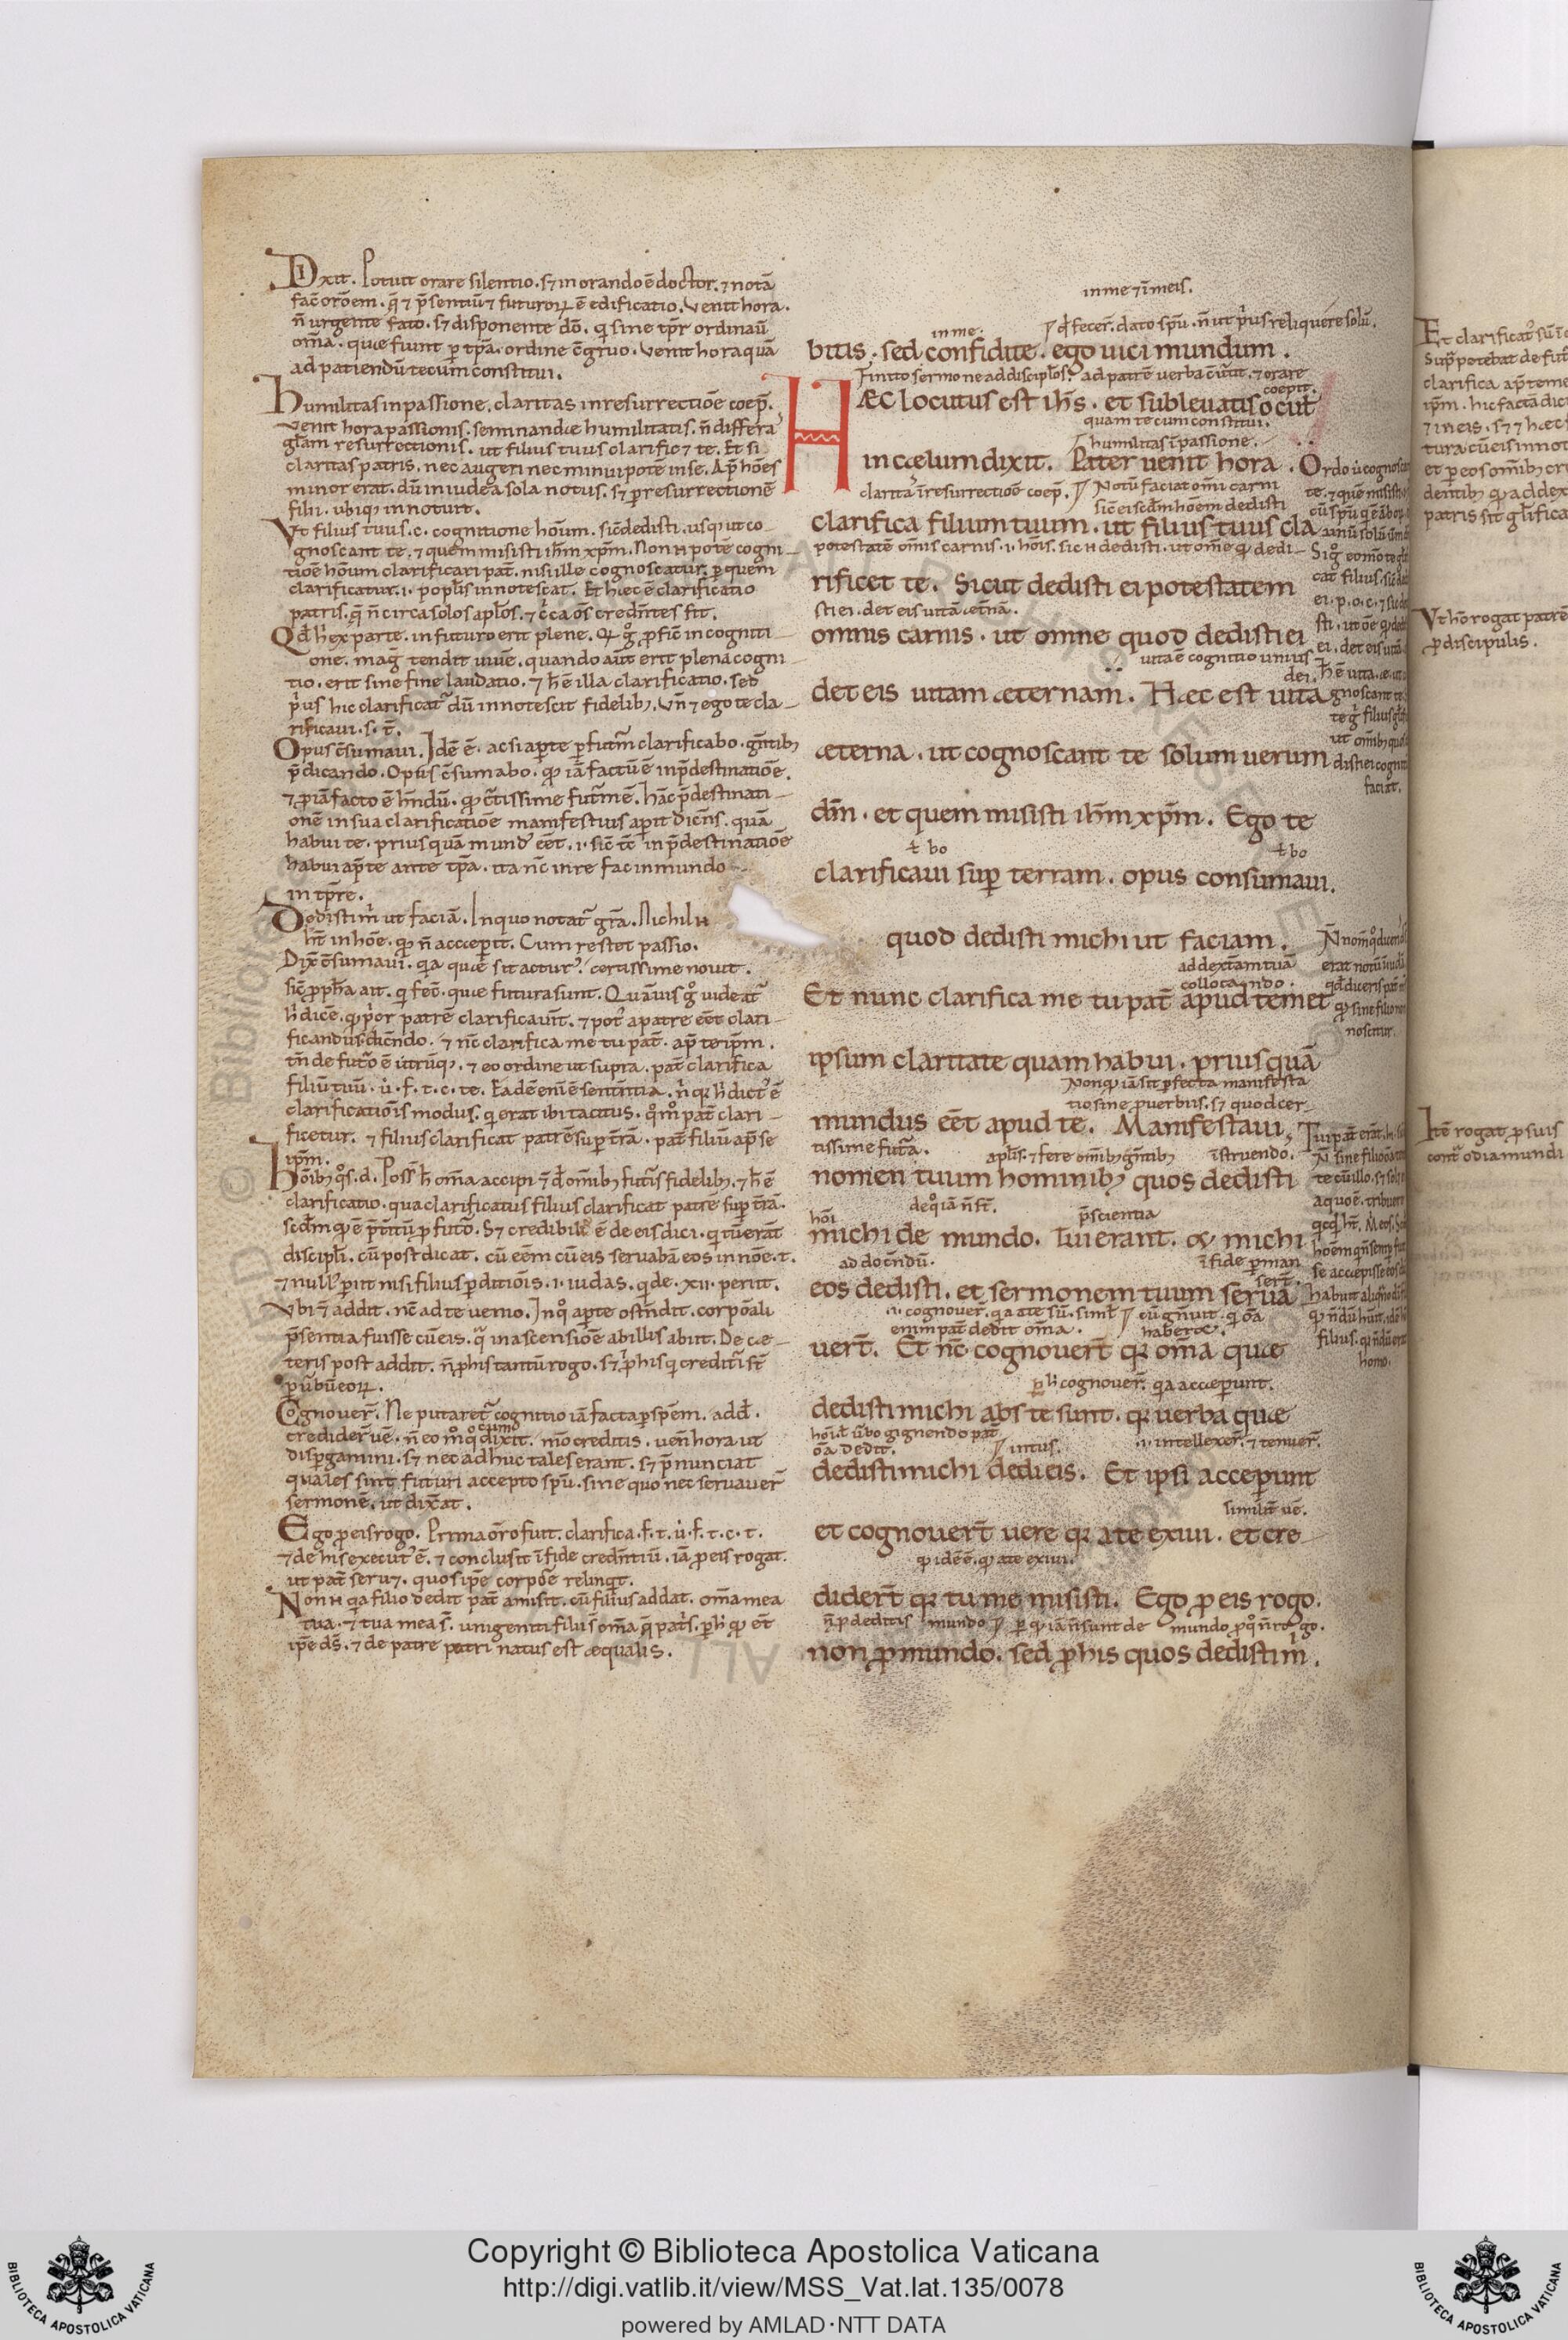 Dixit. Potuit orare silentio. sꝫ in orando ē doctor. ⁊ notā
fac̄ orōem. q̄ ⁊ p̄sentiū ⁊ futuroꝝ ē edificatio. Venit hora.
n̄ urgente fato. sꝫ disponente dō. qi sine tp̄r ordinaū
om̄a. quæ fiunt ꝑ tp̄a. ordine c̄gruo. Venit hora quā
ad patiendū tecum constitui.
Humilitas in passione. claritas in resurrectiōe coep̄.
Venit hora passionis. seminandæ humilitatis. n̄ differa
gl̄am resurrectionis. ut filius tuus clarific̄ ⁊ te. Et si
claritas patris. nec augeri nec minui potē in se. Ap̄ hōes
minor erat. dū in iudea sola notus. sꝫ ꝑ resurrectionē
filii. ubiqꝫ innotuit.
Vt filius tuus. c. cognitione hōum. sic̄ dedisti. usqꝫ ut co-
gnoscant te. ⁊ quem misisti ih̄m xp̄m. Non potē cogni-
tiōe hōum clarificari pat̄. nisi ille cognoscatur. ꝑ quem
clarificatur. i. popl̄is innotescat. Et hæc ē clarificatio
patris. q̄ n̄ circa solos apl̄os. ⁊ c̍ca os̄ credn̄tes fit.
Qd̄ h̍ ex parte. in futuro erit plene. profic̄ in cogniti-
one. mag̍ tendit uiuē. quando aūt erit plena cogni-
tio. erit sine fine laudatio. ⁊ h̄ ē illa clarificatio. sed
p̍us hic clarificat̃ dū innotescit fidelibꝫ. Vn̄ ⁊ ego te cla-
rificaui. s. t̄.
Opus c̄sumaui. Idē ē. ac si aꝑte ꝑ futm̄ clarificabo. gn̄tibꝫ
p̄dicando. Opus c̄sumabo. iā factū ē in p̄destinatiōe.
⁊ ꝓ iā facto ē hn̄dū. c̄tissime futm̄ ē. hāc p̄destinati-
onē in sua clarificatiōe manifestius aꝑit dicn̄s. quā
habui te. prius quā mund' eēt. i. sic̄ in p̄destinatiōe
habui ap̄ te ante tp̄a. ita nc̄ in re fac in mundo
in tp̄re.
Dedisti m̍ ut faciā. In quo notat̃ gr̄a. Nichil
ht̄ in hōe. n̄ acceperit. Cum restet passio.
Dix̄ c̄sumaui. qia quæ sit actur'. certissime nouit.
sic̄ ꝓph̄a ait. qi fec̄. quæ futura sunt. Quāuis g̊ uideat̃
h̍ dicē. p̍or patrē clarificauit. ⁊ pot̍ a patre eēt clari-
ficandus. dicn̄do. ⁊ nc̄ clarifica me tu pat̄. ap̄ te ip̄m.
tn̄ de futo ē utrūqꝫ. ⁊ eo ordine ut supra. pat̄ clarifica
filiū tuū. u̍. f. t. c. te. Eadē eni ē sentn̄tia. n̍ h̍ dict' ē
clarificatiōis modus. qi erat ibi tacitus. q̊m̊ pat̄ clari-
ficetur. ⁊ filius clarificat patrē suꝑ tr̄ā. pat̄ filiū ap̄ se
ip̄m.
Hōibꝫ q̊s. d. Poss̄ h̄ om̄a accipi ꝛ̄ d̄ om̄ibꝫ futis fidelibꝫ. ⁊ h̄ ē
clarificatio. qua clarificatus filius clarificat patrē suꝑ tr̄ā.
scd̄m ē p̄t̄itū ꝓ futo. Sꝫ credibilī ē de eis dici. qi tū erāt
discipl̄i. cū post dicat. cū eēm cū eis seruabā eos in nōe. t.
⁊ null' ꝑiit nisi filius ꝑditiōis. i. iudas. qi de .xii. periit.
Vbi ꝛ̄ addit. nc̄ ad te uenio. In q̊ aꝑte ostn̄dit. corpōali
p̄sentia fuisse cū eis. q̄ in ascensiōe ab illis abiit. De cæ-
teris post addit. n̄ ꝓ his tantū rogo. sꝫ ꝓ his qi credit̄i st̄
ꝑ ūbū eoꝝ.
Cognouer̄. Ne putaret̃ cognitio iā facta ꝑ spēm. add̄.
crediderūē. n̄ eo m̊ q̊ cum dixit. m̊ creditis. uen̄ hora ut
disꝑgamini. sꝫ nec adhuc tales erant. sꝫ p̄nunciat
quales sint futuri accepto sp̄u. sine quo nec seruauer̄
sermonē. ut dix̄at.
Ego ꝓ eis rogo. Prima or̄o fuit. clarifica. f. t. u̍. f. t. c. t.
⁊ de his execut' ē. ⁊ conclusit ī fide credn̄tiū. iā ꝓ eis rogat.
ut pat̄ seruꝫ. quos ip̄e corpōe relinq̍t.
Non qia filio dedit pat̄ amisit. cū filius addat. om̄a mea
tua. ⁊ tua mea s̄. unigeniti filii s̄ om̄a q̄ pat̍s. ꝑ h̍ et̄
ip̄e ds̄. ⁊ de patre patri natus est æqualis.
in me ⁊ ī meis.
in me. qd̄ fecer̄. dato sp̄u. n̄ ut p̍us reliquere solū.
bitis. sed confidite. ego uici mundum.
Finito sermone ad discipl̄os. ad patrē uerba c̄uūt. ⁊ orare
coepit.
HÆC locutus est ih̄s. et subleuatis ocul̄
quam tecum constitui.
humilitas ī passione.
in cælum dixit. Pater uenit hora.
claritas ī resurrectiōe coep̄. Notū faciat om̄i carni
sic̄ ei scd̄m hōem dedisti
clarifica filium tuum. ut filius tuus cla
potestatē om̄is carnis. i. hōis. sic dedisti. ut om̄e dedi-
rificet te. Sicut dedisti ei potestatem
sti ei. det eis uitā æt̄nā.
omnis carnis. ut omne quod dedisti ei
uita ē cognitio unius
dei.
det eis uitam æternam. Hæc est uita
æterna. ut cognoscant te solum uerum
dm̄. et quem misisti ih̄m xp̄m. Ego te
ł bo ł bo
clarificaui suꝑ terram. opus consumaui.
quod dedisti michi ut faciam.
ad dext̄am tuā
collocando.
Et nunc clarifica me tu pat̄ apud temet
ipsum claritate quam habui. prius quā
Non iā sit ꝑfecta manifesta
tio sine ꝓuerbiis. sꝫ quod cer-
mundus eēt apud te. Manifestaui
tissime futa. apl̄is. ⁊ fere om̄ibꝫ gn̄tibꝫ īstruendo.
nomen tuum hominibꝫ quos dedisti
hōi de q̊ iā n̄ st̄. p̄scientia
michi de mundo. Tui erant. & michi
ad docn̄dū. ī fide ꝑman
sert̄.
eos dedisti. et sermonem tuum serua
.i. cognouer̄. qia a te sū. siml̄ cū gn̄uit. qi oā
enim pat̄ dedit om̄a. haberet.
uert̄. Et nc̄ cognouert̄ qꝛ om̄a quæ
ꝑ h̍ cognouer̄. qia acceperunt.
dedisti michi abs te sunt. qꝛ uerba quæ
hōi. ł ūbo gignendo pat̄
oā dedit. intus. .i. intellexer̄. ⁊ tenuer̄.
dedisti michi dedi eis. Et ipsi acceperunt
similit̄ uē.
et cognouert̄ uere qꝛ a te exiui. et cre-
idē ē. a te exiui.
didert̄ qꝛ tu me misisti. Ego ꝓ eis rogo.
n̄ ꝓ deditis mundo ꝑ iā n̄ sunt de mundo ꝓ q̊ n̄ rogo.
non ꝓ mundo. sed ꝓ his quos dedisti m̍.
Ordo u̍ cognoscan
te. ⁊ quē misisti
cat filius. sic̄
ei. p. o. c. ⁊
sti. ut oē
ei. det eis uitā
h̄ ē uita. æ. ut
gnoscant te.
te g̍ filius
ut om̄ibꝫ
disti ei cogniti
faciāt.
erat notū
sine filio
noscitur.
Tui pat̄ erāt.
te cū illo.
a quo ē. tribuere
hōem
se accepisse eos
habuit
filius.
homo.
Et clarificat'
Suꝑ potebat de fut
clarifica ap̄ teme
ip̄m. hic facta dic
⁊ in eis. sꝫ ⁊ hæc
tura cū eis innot
et ꝑ eos om̄ibꝫ cr
dentibꝫ ad dex
patris sit gl̄ifica
Vt hō rogat patrē
ꝓ discipulis.
Itē rogat ꝓ suis
cont̄ odia mundi
Copyright © Biblioteca Apostolica Vaticana
http://digi.vatlib.it/view/MSS_Vat.lat.135/0078
powered by AMLAD·NTT DATA
BIBLIOTECA APOSTOLICA VATICANA
BIBLIOTECA APOSTOLICA VATICANA